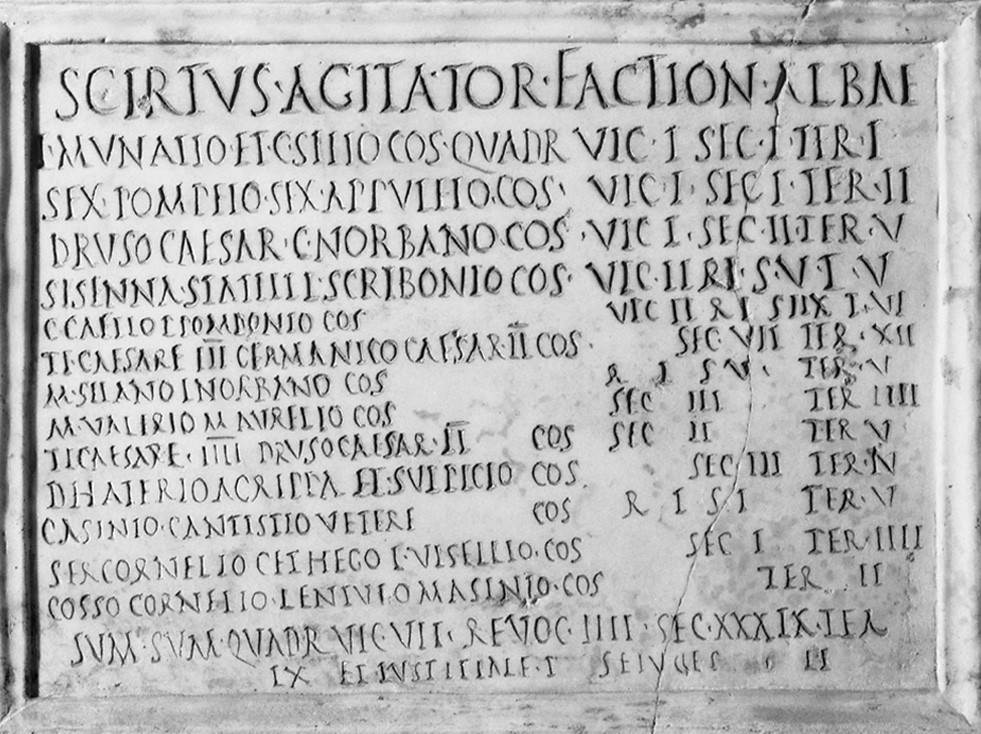 SCIRTVS·AGITATOR·FACTION·ALBAE
L·MVNATIO·ET·C·SILIO COS·QVADR VIC·I SEC·I TER·I
SEX·POMPEIO·SEX·APPVLEIO·COS· VIC·I·SEC I·TER·II
DRVSO CAESAR·C·NORBANO·COS·VIC I·SEC·II·TER·V
SISENNA·STATILI L·SCRIBONIO COS· VIC·II R I·S·V·T V
C CAELIO L POMPONIO COS VIC II R I S IIX T·VI
TI CAESARE III GERMANICO CAESAR II COS· SEC VII TER·XII
M·SILANO L NORBANO COS R I S V· TER·V
M·VALERIO M AVRELIO COS SEC III TER IIII
TI CAESARE·IIII DRVSO CAESAR·II COS SEC II TER V
D HATERIO AGRIPPA ET·SVLPICIO COS SEC III TER·IV
C ASINIO·C ANTISTIO VETERE COS R I S I TER·V
SER CORNELIO CETHEGO L·VISELLIO·COS SEC I TER·IIII
COSSO CORNELIO·LENTVLO M ASINIO·COS TER II
SVM·SVM·QVADR VIC·VII·REVOC·IIII·SEC·XXXIX·TER
LX ET IVSTITIALE·I SEIVGES II